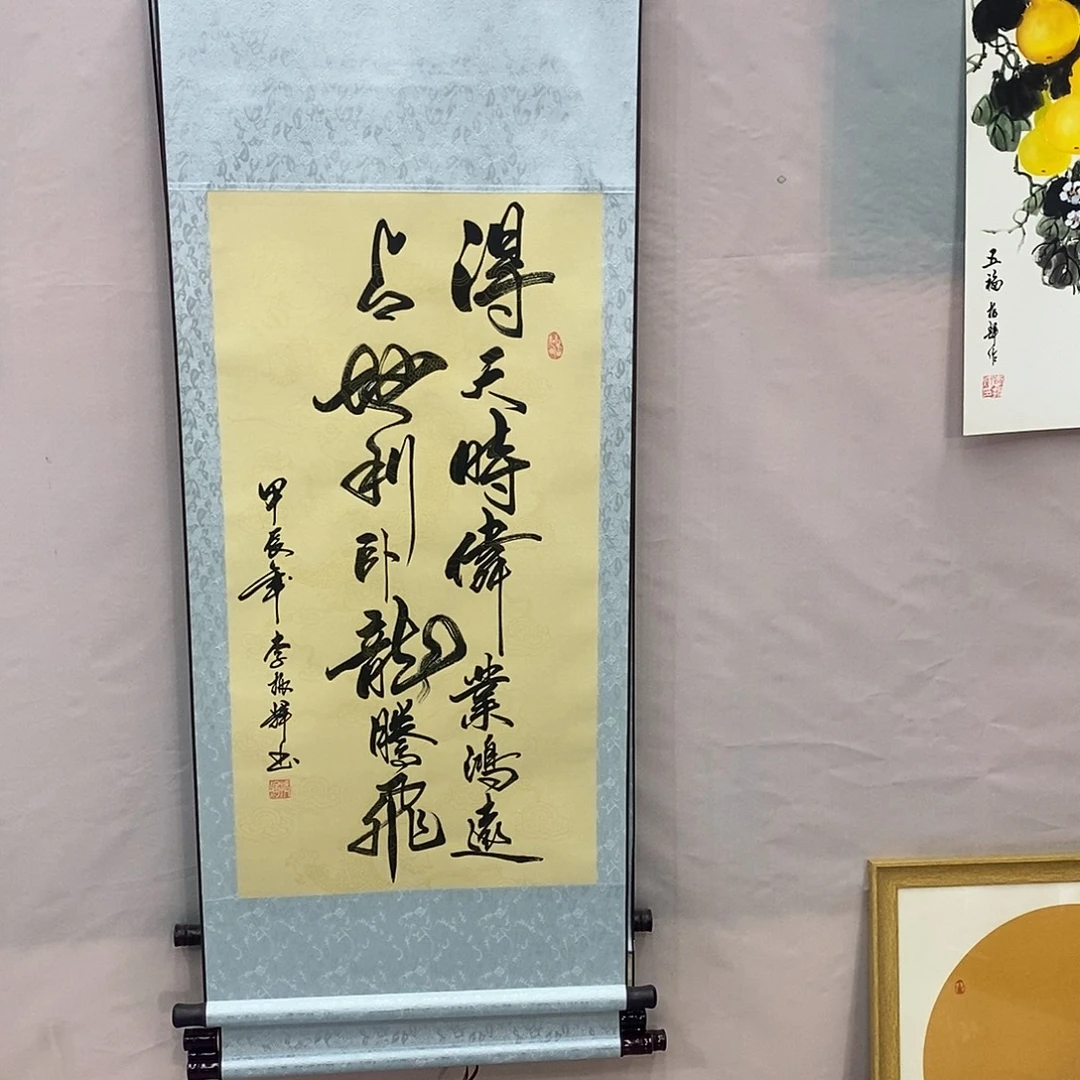 得天時偉業鴻遠
占地利卧龍騰飛
甲辰年李振輝书
五福 振輝作